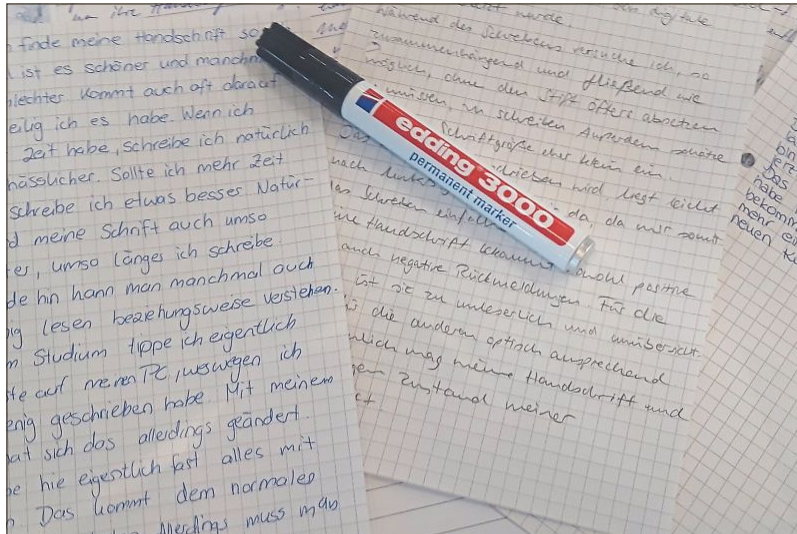 an ihre
finde meine Handschrift so
ist es schöner und manchm
lechter kommt auch oft darauf
eilig ich es habe. Wenn ich
Zeit habe, schreibe ich natürlich
hässlicher. Sollte ich mehr Zeit
schreibe ich etwas besser Natür-
d meine Schrift auch umso
er, umso länges ich schreibe
de hin kann man manchmal auch
ig lesen beziehungsweise verstehen.
m Studium tippe ich eigentlich
te auf meinen PC, weswegen ich
enig geschrieben habe. Mit meinem
at sich das allerdings geändert.
be hie eigentlich fast alles mit
Das kommt dem normalen
Allerdings muss man
edding 3000
permanent marker
wurde
digitale
während des Schreibens versuche ich, so
zusammenhängend und fließend wie
möglich, ohne den Stift öfters absetzen
müssen, zu schreiben Außerdem
Schriftgröße eher klein ein
Das schrieben wird liegt leicht
nach links da, da mir somit
das Schreiben einfa
ne Handschrift bekomm wohl positive
auch negative Rückmeldungen Für die
ist sie zu unleserlich und unübersicht-
die anderen optisch ansprechend
nlich mag meine Handschrift und
em Zustand meiner
t.
jetz
Das
habe
bekomm
mehr ei
neuen Ku